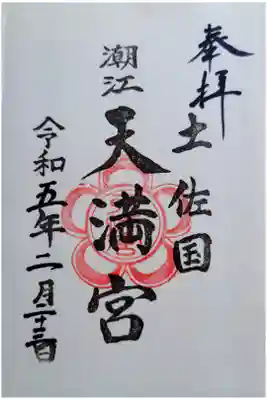 奉拝
土佐国
潮江
天満宮
令和五年二月二十三日